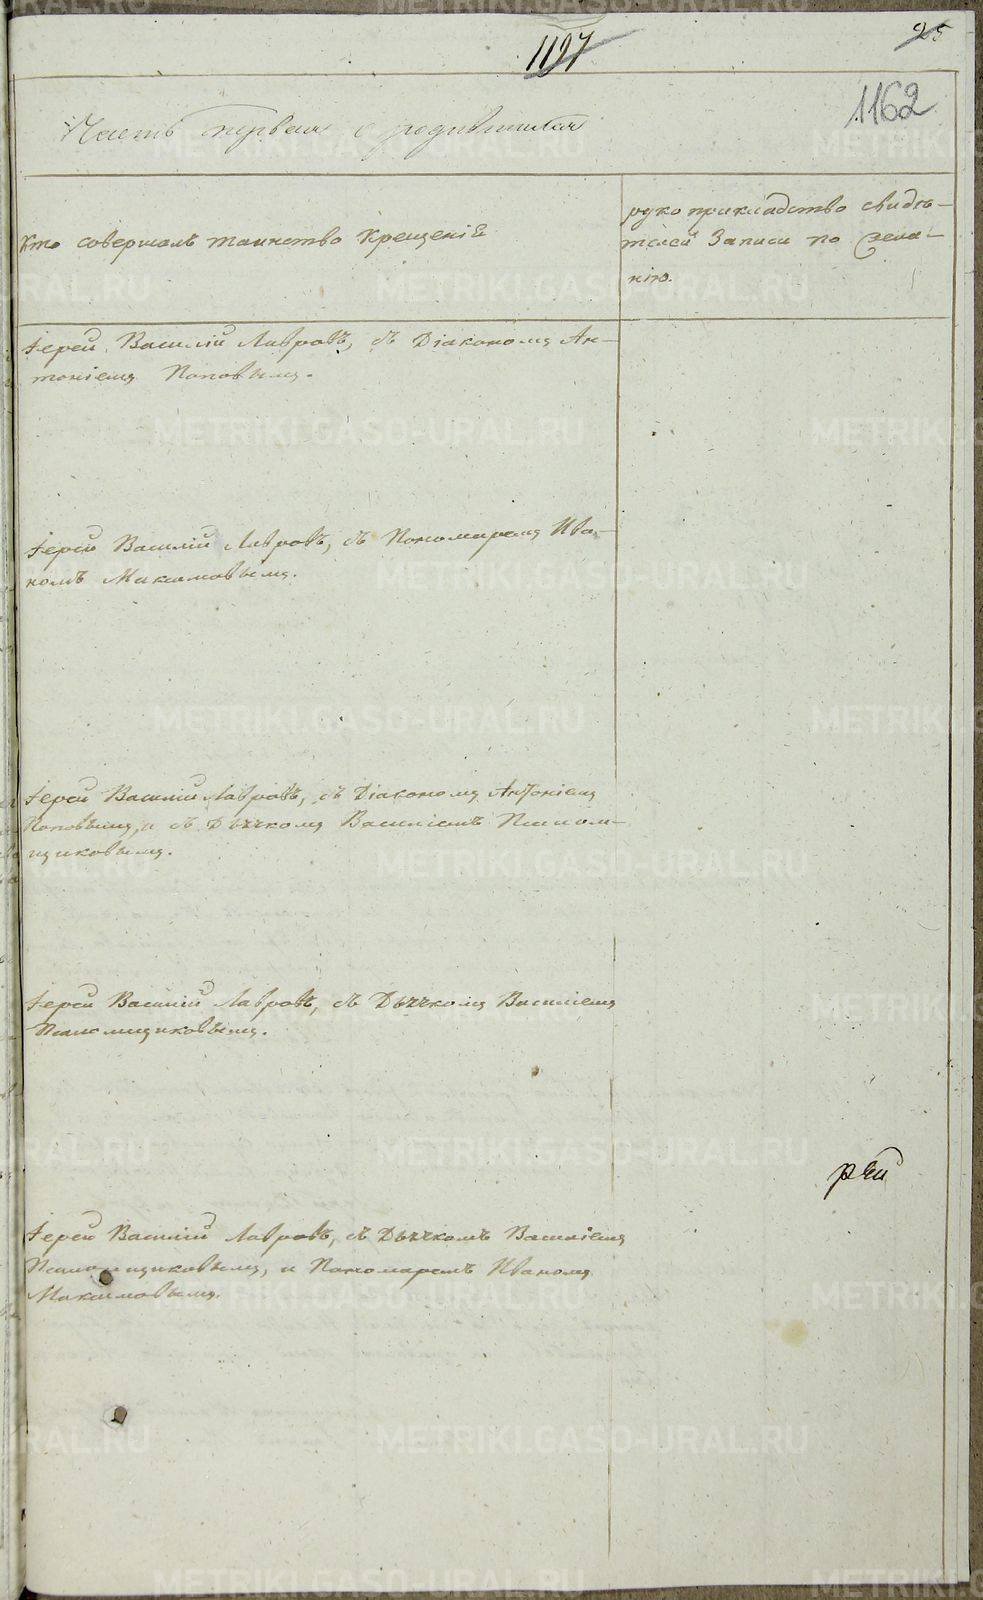 1197
25
1162
Часть первая о родившихся
Кто совершалъ таинство Крещенія
рукоприкладство свидѣ-
телей Записи по жела-
нію.
Іерей Василій Лавровъ, съ Діакономъ Ан-
тоніемъ Поповымъ.
Іерей Василій Лавровъ, съ Пономаремъ Ива-
номъ Максимовымъ.
Іерей Василій Лавровъ, съ Діакономъ Антоніемъ
Поповымъ, и съ Дьячкомъ Василіемъ Псалом-
щиковымъ.
Іерей Василій Лавровъ, съ Дьячкомъ Василіемъ
Псаломщиковымъ.
рей
Іерей Василій Лавровъ, съ Дьячкомъ Василіемъ
Псаломщиковымъ, и Пономаремъ Иваномъ
Максимовымъ.
METRIKI.GASO-URAL.RU